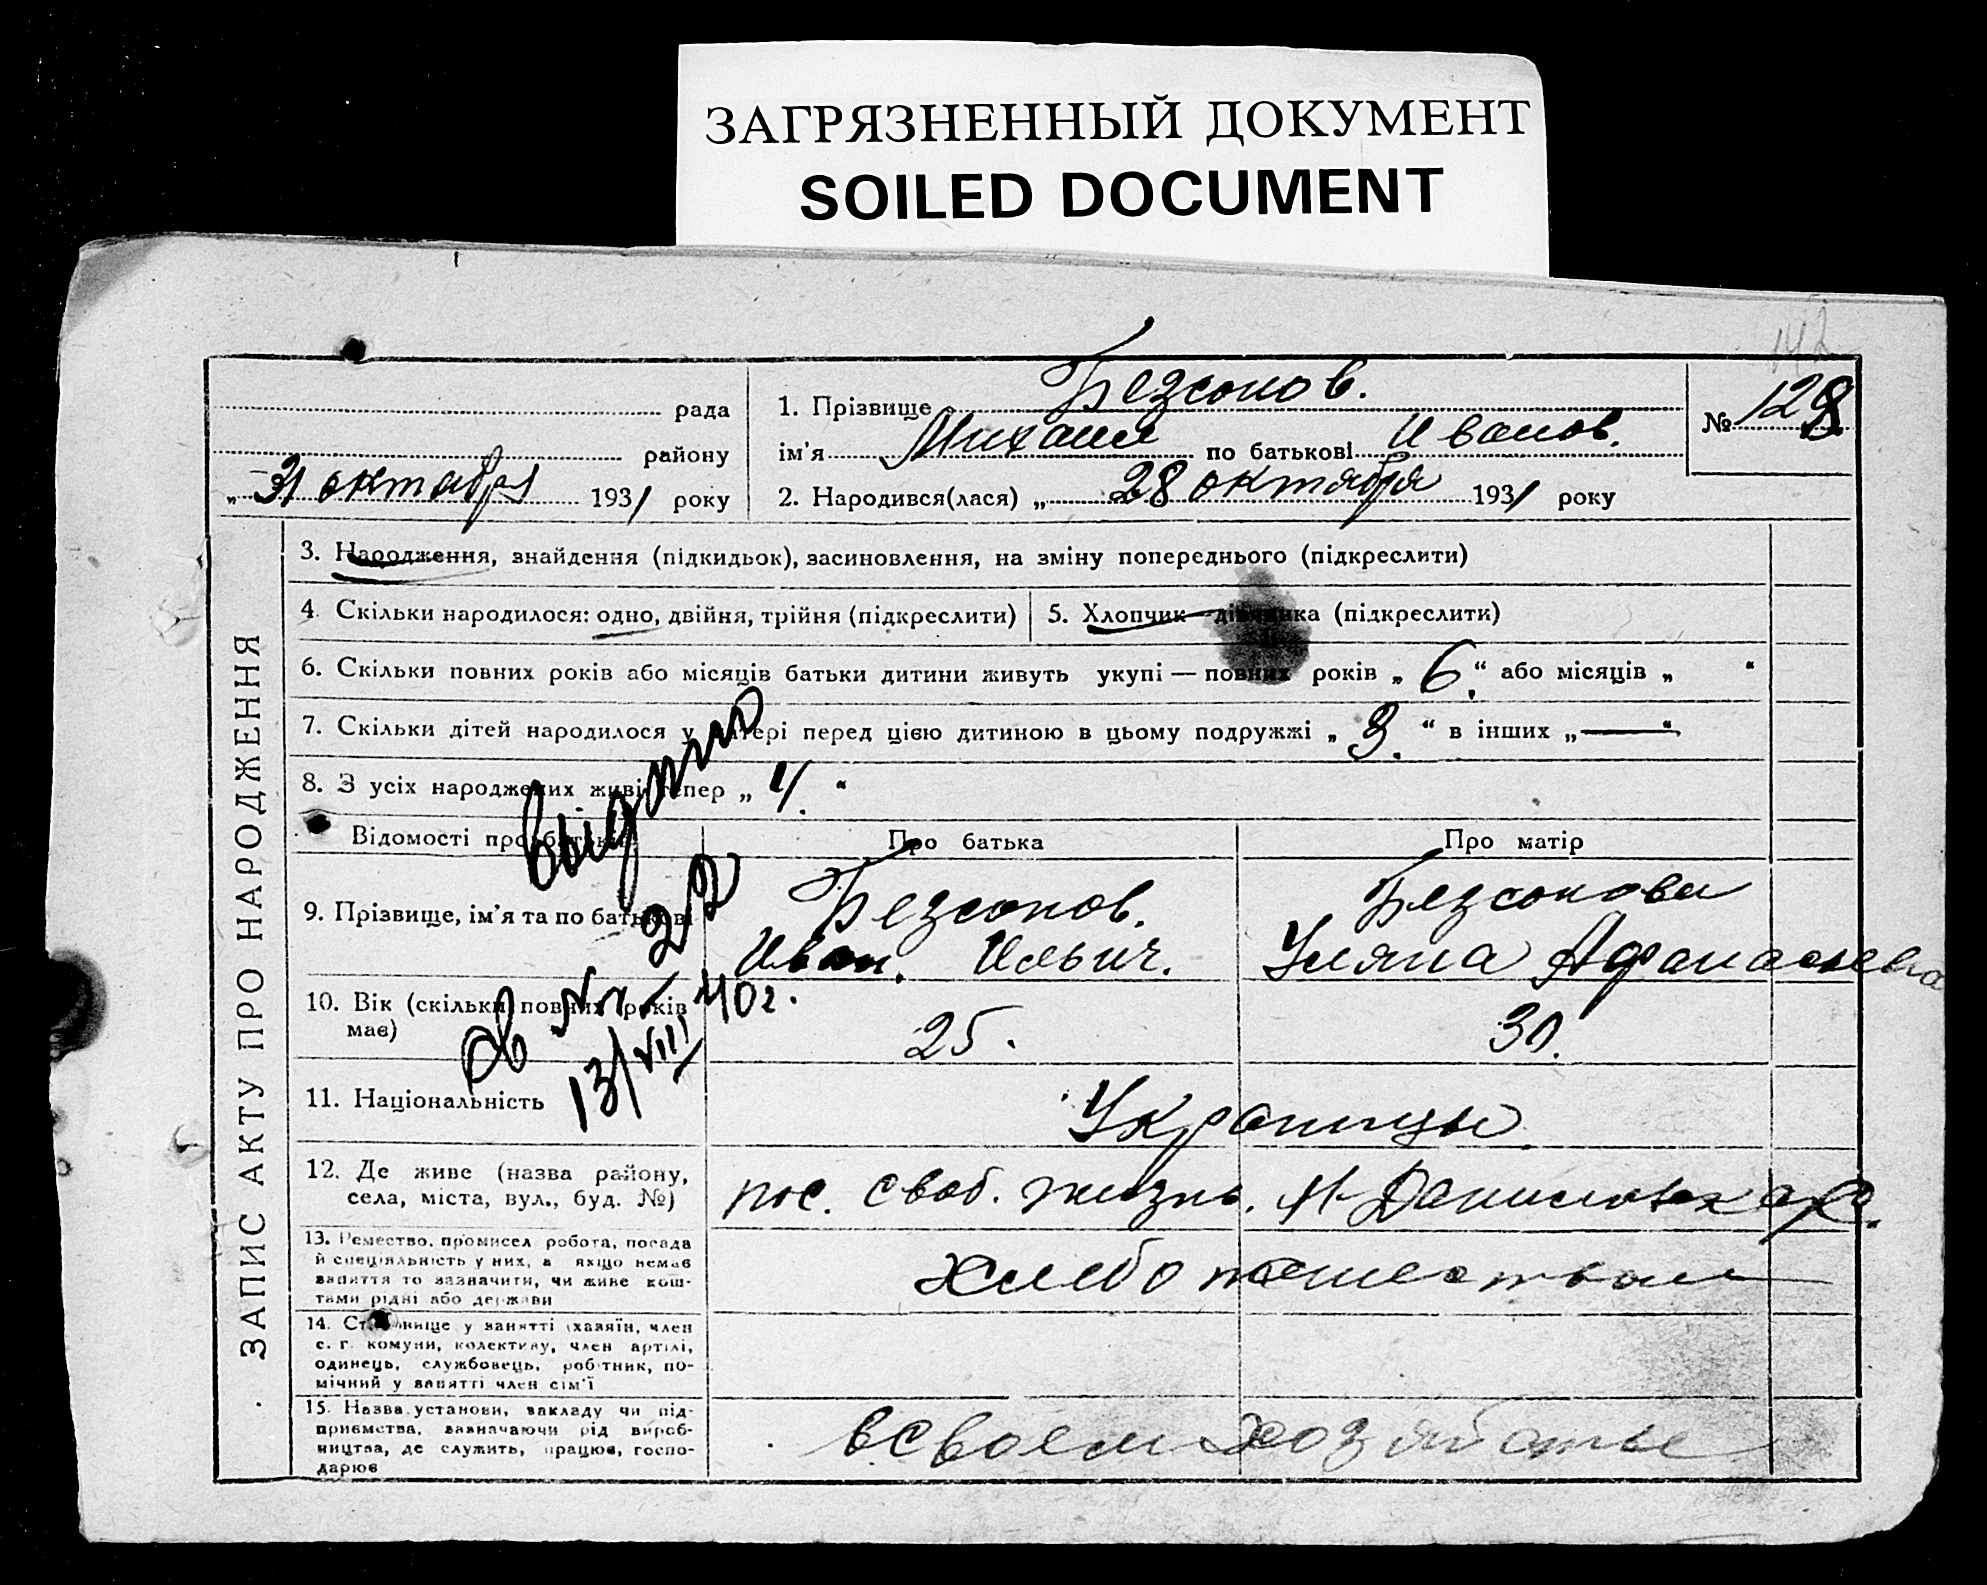 ЗАГРЯЗНЕННЫЙ ДОКУМЕНТ
SOILED DOCUMENT
142
рада
району
„ 31 октября 1931 року
1. Прізвище Безсонов.
ім'я Михаил по батькові Иванов.
2. Народився(лася) „ 28 октября 1931 року
№ 128
ЗАПИС АКТУ ПРО НАРОДЖЕННЯ
3. Народження, знайдення (підкидьок), засиновлення, на зміну попереднього (підкреслити)
4. Скільки народилося: одно, двійня, трійня (підкреслити)
5. Хлопчик — дівчинка (підкреслити)
6. Скільки повних років або місяців батьки дитини живуть укупі — повних років „ 6. “ або місяців „ “
7. Скільки дітей народилося у матері перед цією дитиною в цьому подружжі „ 3. “ в інших „ — “
8. З усіх народжених живі тепер „ 4. “
Відомості про батьків
Про батька
Про матір
9. Прізвище, ім'я та по батькові
Безсонов.
Иван. Ильич.
Безсонова
Уляна Афанасиевна
10. Вік (скільки повних років
має)
25.
30.
11. Національність
Украинцы
12. Де живе (назва району,
села, міста, вул., буд. №)
пос. своб. жизнь. Н-Даниловка
13. Ремество, промисел робота, посада
й спеціяльність у них, а якщо немає
заняття то зазначити, чи живе кош-
тами рідні або держави
хлебопашеством
14. Становище у занятті (хазяїн, член
с. г. комуни, колективу, член артілі,
одинець, службовець, робітник, по-
мічний у занятті член сім'ї
15. Назва установи, закладу чи під-
приємства, зазначаючи рід вироб-
ництва, де служить, працює, госпо-
дарює
в своем хозяйстве
Выдано
св №
22
13/VIII 40 г.